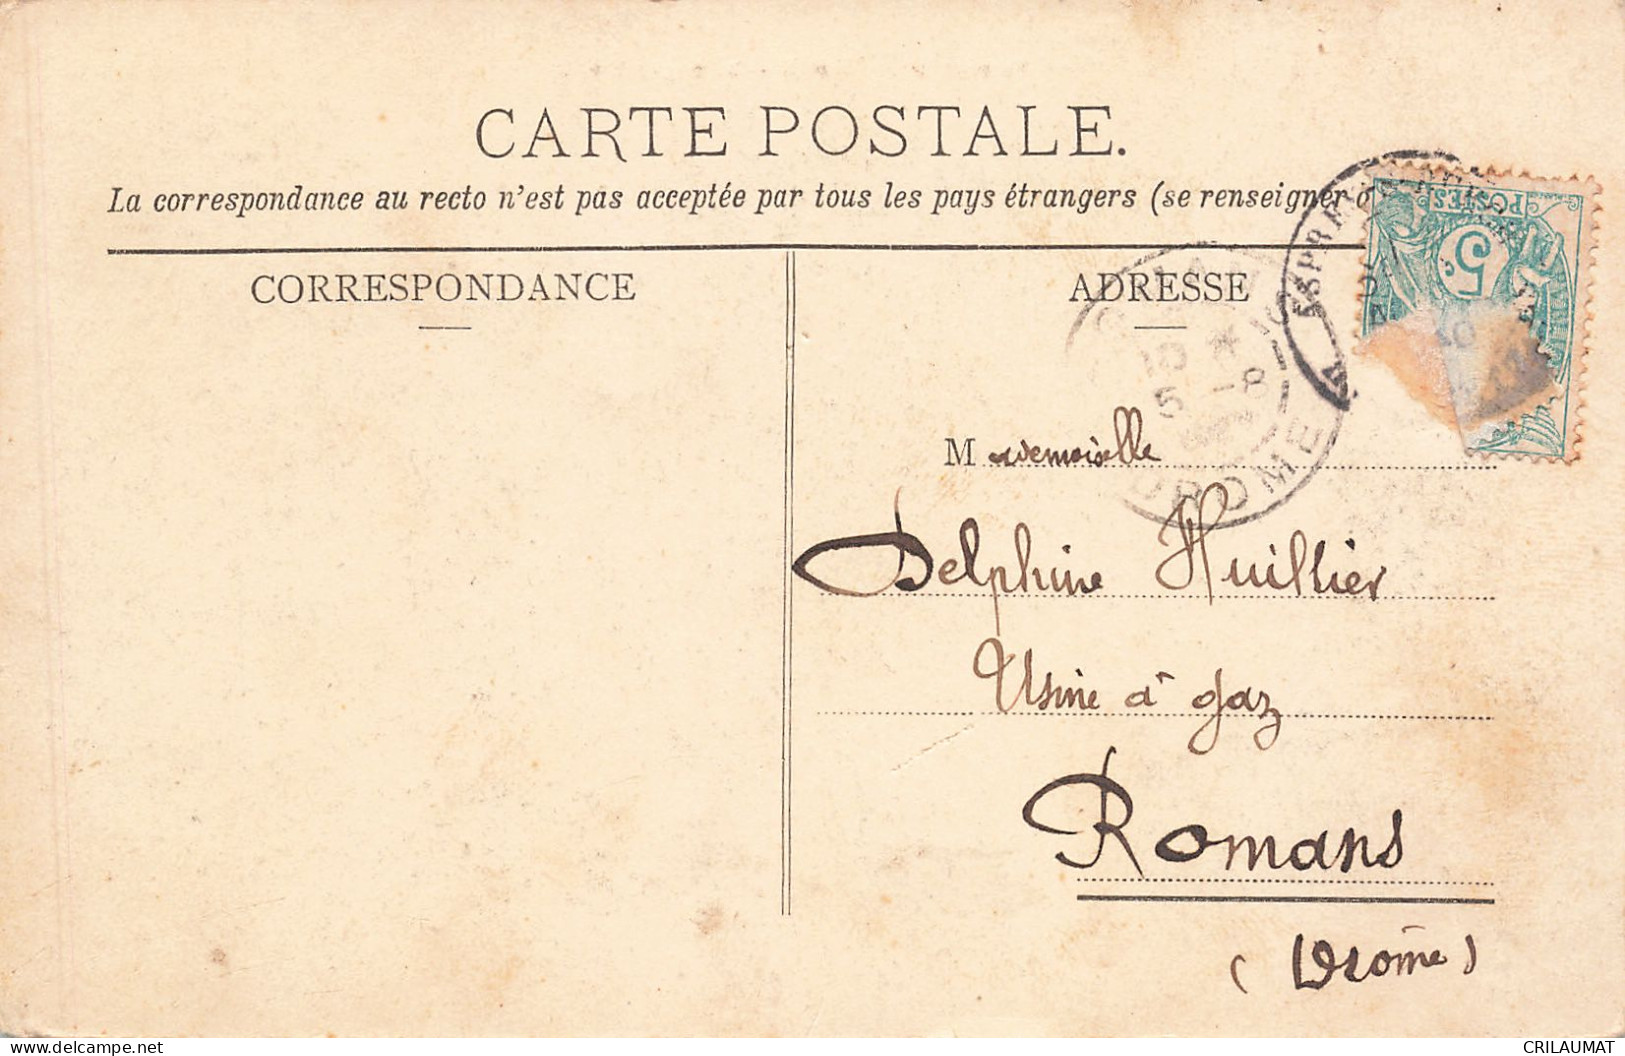 CARTE POSTALE.
La correspondance au recto n'est pas acceptée par tous les pays étrangers (se renseigner
CORRESPONDANCE
ADRESSE
POSTES
5c.
10 *
5 -8
DROME
Mademoiselle
Delphine Huillier
Usine à gaz
Romans
(Drôme)
www.delcampe.net
CRILAUMAT